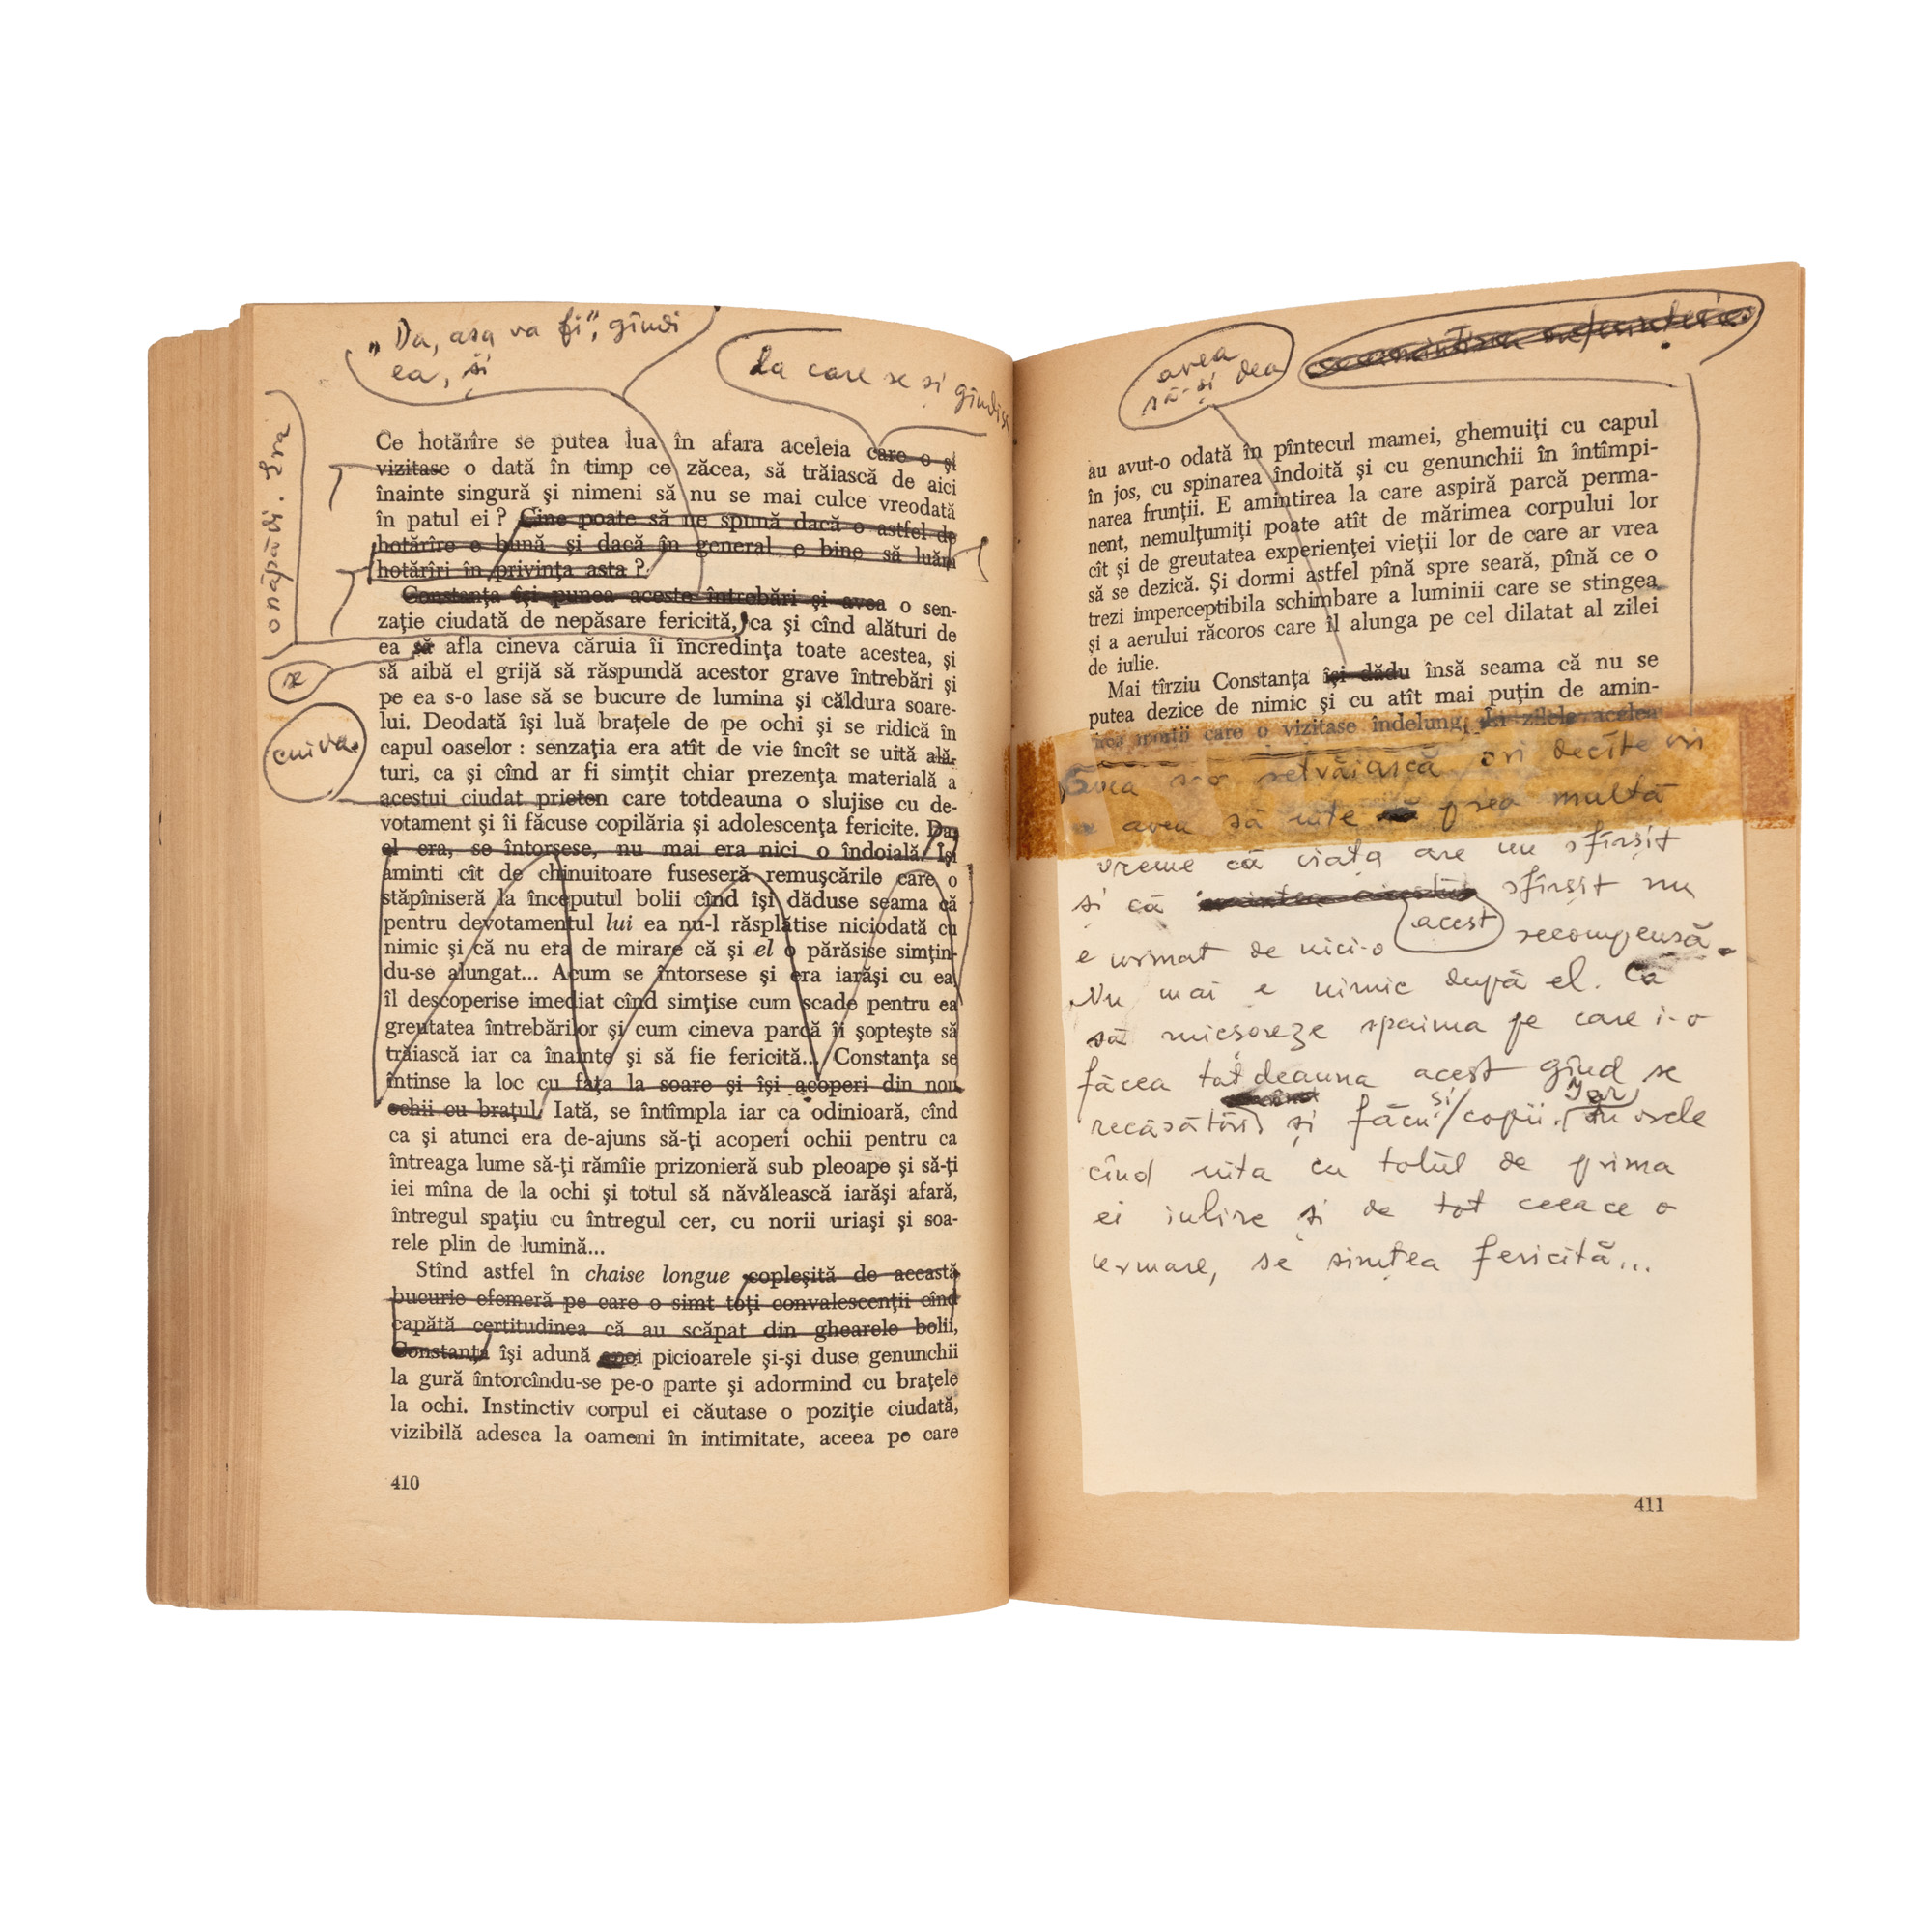 „Da, așa va fi”, gîndi
ea, și
La care se și gîndise
onăpădi. Era
se
cuiva
Ce hotărîre se putea lua în afara aceleia care o şi
vizitase o dată în timp ce zăcea, să trăiască de aici
înainte singură şi nimeni să nu se mai culce vreodată
în patul ei ? Cine poate să ne spună dacă o astfel de
hotărîre e bună şi dacă în general e bine să luăm
hotărîri în privinţa asta ?
Constanţa îşi punea aceste întrebări şi avea o sen-
zaţie ciudată de nepăsare fericită, ca şi cînd alături de
ea să afla cineva căruia îi încredinţa toate acestea, şi
să aibă el grijă să răspundă acestor grave întrebări şi
pe ea s-o lase să se bucure de lumina şi căldura soare-
lui. Deodată îşi luă braţele de pe ochi şi se ridică în
capul oaselor : senzaţia era atît de vie încît se uită ală-
turi, ca şi cînd ar fi simţit chiar prezenţa materială a
acestui ciudat prieten care totdeauna o slujise cu de-
votament şi îi făcuse copilăria şi adolescenţa fericite. Da,
el era, se întorsese, nu mai era nici o îndoială. Îşi
aminti cît de chinuitoare fuseseră remuşcările care o
stăpîniseră la începutul bolii cînd îşi dăduse seama că
pentru devotamentul lui ea nu-l răsplătise niciodată cu
nimic şi că nu era de mirare că şi el o părăsise simţin-
du-se alungat... Acum se întorsese şi era iarăşi cu ea,
îl descoperise imediat cînd simţise cum scade pentru ea
greutatea întrebărilor şi cum cineva parcă îi şopteşte să
trăiască iar ca înainte şi să fie fericită... Constanţa se
întinse la loc cu faţa la soare şi îşi acoperi din nou
ochii cu braţul. Iată, se întîmpla iar ca odinioară, cînd
ca şi atunci era de-ajuns să-ţi acoperi ochii pentru ca
întreaga lume să-ţi rămîie prizonieră sub pleoape şi să-ţi
iei mîna de la ochi şi totul să năvălească iarăşi afară,
întregul spaţiu cu întregul cer, cu norii uriaşi şi soa-
rele plin de lumină...
Stînd astfel în chaise longue copleşită de această
bucurie efemeră pe care o simt toţi convalescenţii cînd
capătă certitudinea că au scăpat din ghearele bolii,
Constanţa îşi adună apoi picioarele şi-şi duse genunchii
la gură întorcîndu-se pe-o parte şi adormind cu braţele
la ochi. Instinctiv corpul ei căutase o poziţie ciudată,
vizibilă adesea la oameni în intimitate, aceea pe care
410
avea
să-și dea
au avut-o odată în pîntecul mamei, ghemuiţi cu capul
în jos, cu spinarea îndoită şi cu genunchii în întîmpi-
narea frunţii. E amintirea la care aspiră parcă perma-
nent, nemulţumiţi poate atît de mărimea corpului lor
cît şi de greutatea experienţei vieţii lor de care ar vrea
să se dezică. Şi dormi astfel pînă spre seară, pînă ce o
trezi imperceptibila schimbare a luminii care se stingea
şi a aerului răcoros care îl alunga pe cel dilatat al zilei
de iulie.
Mai tîrziu Constanţa îşi dădu însă seama că nu se
putea dezice de nimic şi cu atît mai puţin de amin-
tirea morţii care o vizitase îndelung. În zilele acelea
avea s-o retrăiască ori decîte ori
avea să uite prea multă
vreme că viața are un sfîrșit
și că acest sfîrșit nu
e urmat de nici-o recompensă.
Nu mai e nimic după el. Ca
să micșoreze spaima pe care i-o
făcea totdeauna acest gînd se
recăsători și făcu și copii. Iar în orele
cînd uita cu totul de prima
ei iubire și de tot ceea ce o
urmare, se simțea fericită...
411